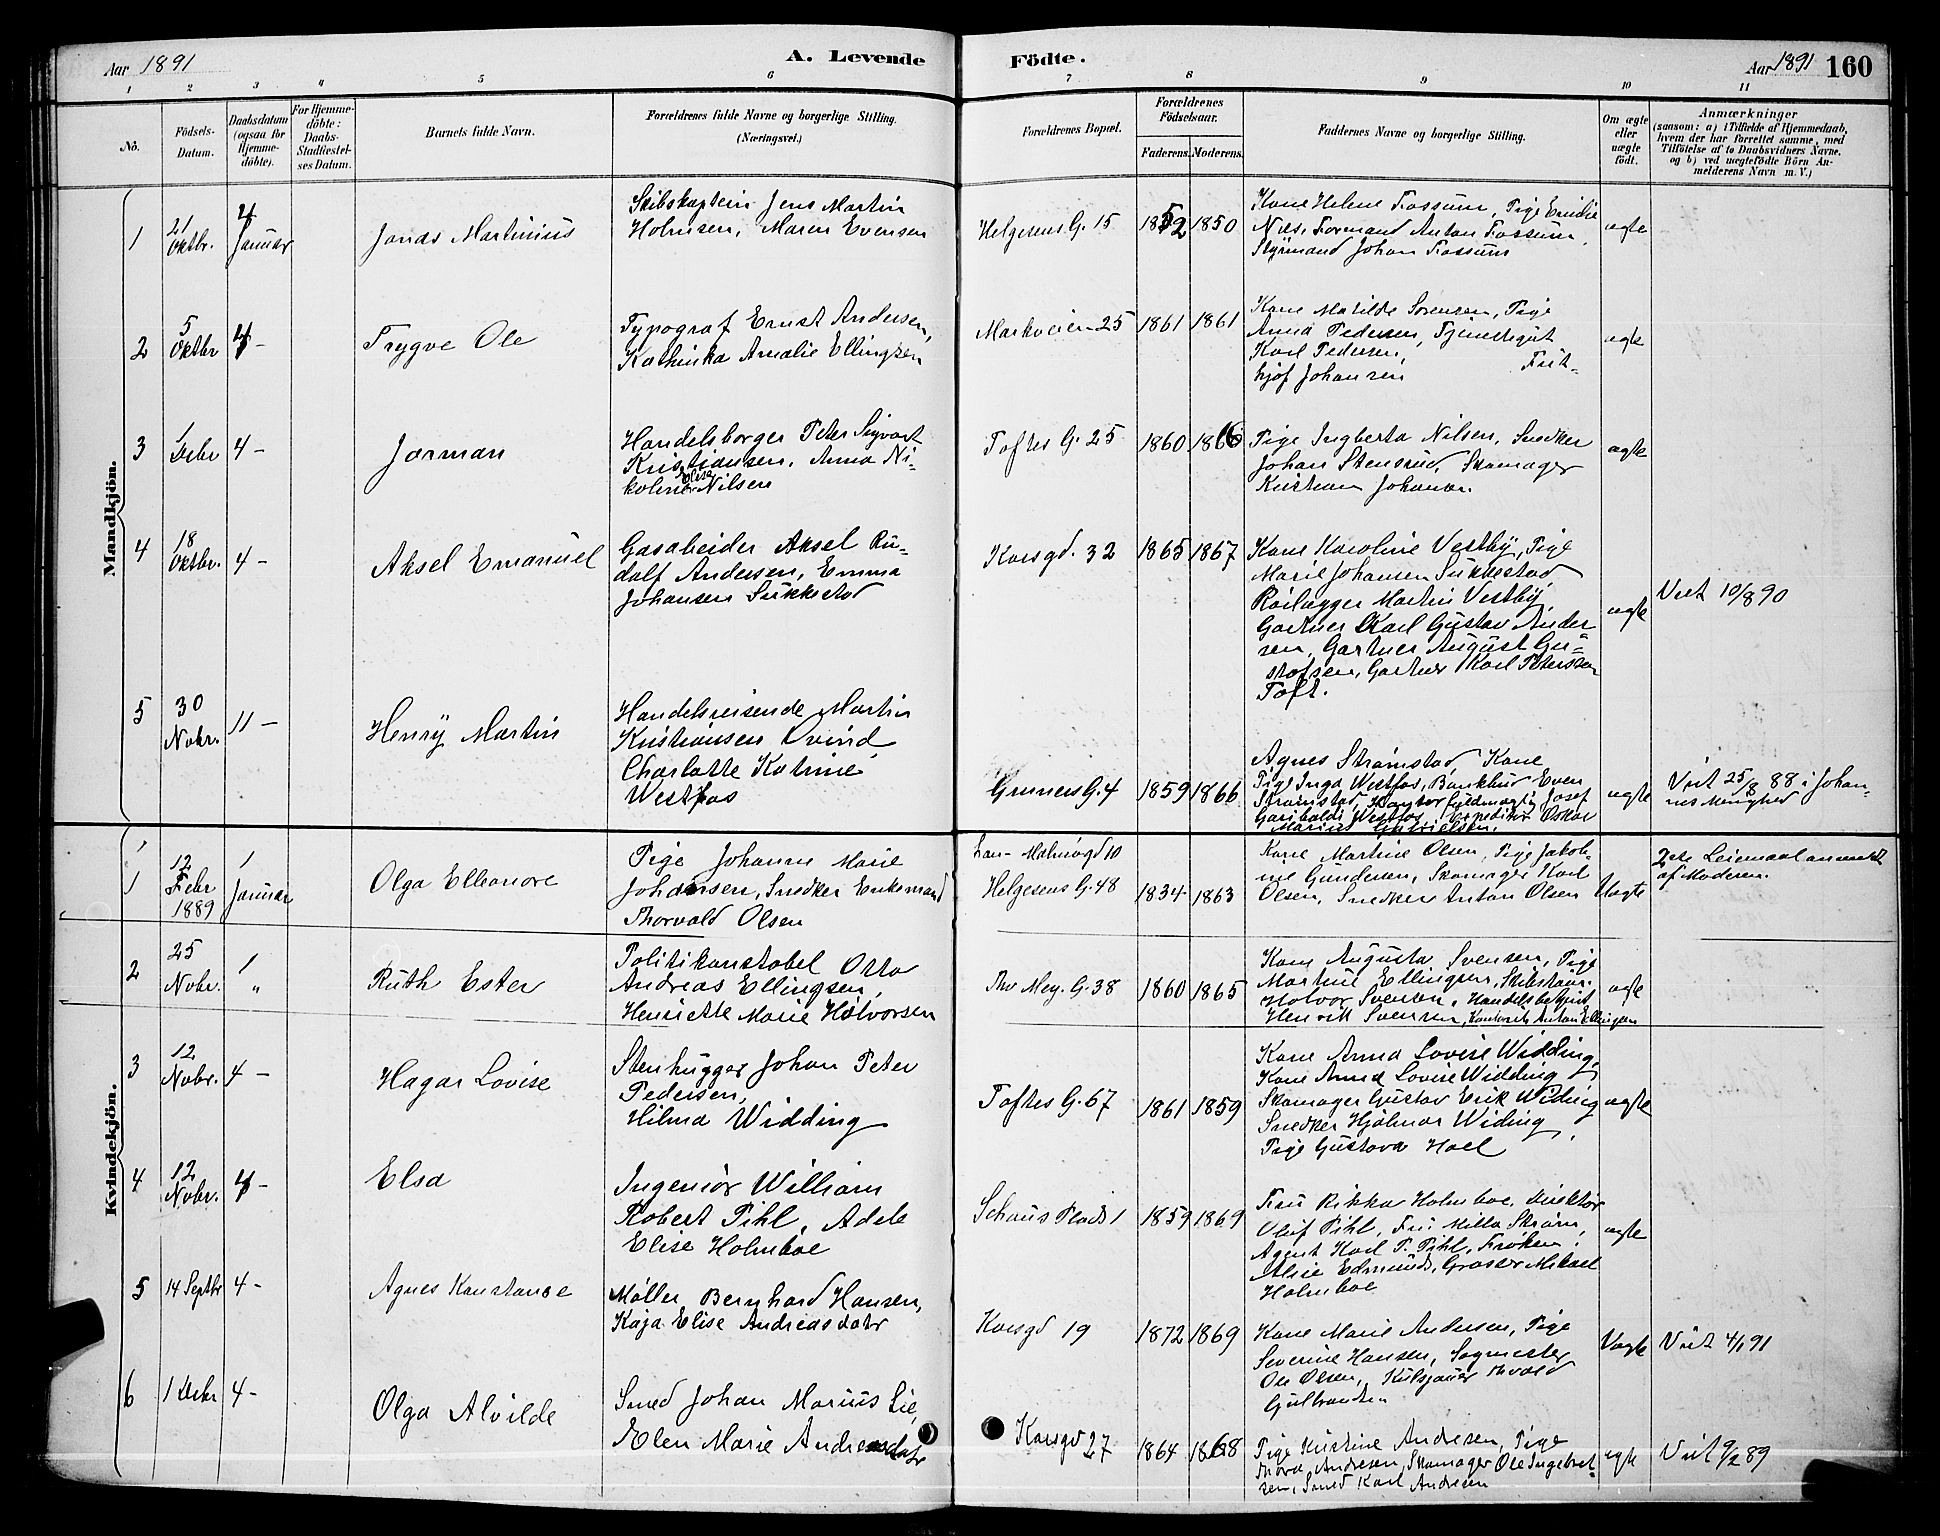 Aar 1891
A. Levende
Födte.
Aar 1891
160
1 2 3 4 5 6 7 8 9 10 11
No.
Födsels-
Datum.
Daabsdatum
(ogsaa for
Hjemme-
döbte).
For Hjemme-
döbte:
Daabs-
Stadfæstel-
ses Datum.
Barnets fulde Navn.
Forældrenes fulde Navne og borgerlige Stilling.
(Næringsvei.)
Forældrenes Bopæl.
Forældrenes
Födselsaar.
Faderens. Moderens.
Faddernes Navne og borgerlige Stilling.
Om ægte
eller
uægte
født.
Anmærkninger
(saasom: a) i Tilfælde af Hjemmedaab,
hvem der har forrettet samme, med
Tilföielse af to Daabsvidners Navne,
og b) ved uægtefødte Börn An-
melderens Navn m. V.)
Mandkjön.
1
21
Oktbr.
4
Januar
Jonas Martinius
Skibskaptein Jens Martin
Holmsen, Maren Evensen
Helgesens G. 15
1852 1850
Kone Helene Fossum, Pige Emilie
Nils, Formand Anton Fossum,
Styrmand Johan Fossum
ægte
2
5
Oktbr
4 -
Trygve Ole
Typograf Ernst Andersen,
Kathinka Amalie Ellingsen
Markveien 25
1861 1861
Kone Matilde Sorensen, Pige
Anna Pedersen, Tjenestegut
Karl Pedersen, Frit-
hjof Johansen
ægte
3
1
Decbr
4 -
Jorman
Handelsborger Peter Sigvart
Kristiansen, Anna Ni-
koline Elise Nilsen
Toftes G. 25
1860 1866
Pige Ingberta Nilsen, Snedker
Johan Stensrud, Skomager
Kristian Johansen.
ægte
4
18
Oktbr.
4 -
Aksel Emanuel
Gasarbeider Aksel Ru-
dolf Andersen, Emma
Johansen Sukkestad
Korsgd. 32
1865 1867
Kone Karoline Vestby, Pige
Marie Johansen Sukkestad
Rörlægger Martin Vestby,
Gartner Karl Gustav Ander-
sen, Gartner August Gu-
stafsen, Gartner Karl Peterssen
Toft.
ægte
Viet 10/8 90
5
30
Nobr.
11 -
Henry Martin
Handelsreisende Martin
Kristiansen Qvind,
Charlotte Katrine
Westfos
Gruners G. 4
1859 1866
Agnes Strömstad Kone
Pige Inga Westfos, Bankbud Even
Strömstad, Kontorfuldmægtig Josef
Garibaldi Westfos, Expeditör Oskar
Marius Gabrielsen.
ægte
Viet 25/8 88 i Johan-
nes Menighed
Kvindekjön.
1
12
Febr
1889
1
Januar
Olga Elleonore
Pige Johanne Marie
Johansen, Snedker Enkemand
Thorvald Olsen
Malmøgd 10
Helgesens G. 48
1834 1863
Kone Martine Olsen, Pige Jakob-
ine Gundersen, Skomager Karl
Olsen, Snedker Anton Olsen
Uægte
2det Leiemaal anmeldt
af Moderen.
2
25
Nobr.
1
"
Ruth Ester
Politikonstabel Otto
Andreas Ellingsen,
Henriette Marie Halvorsen
Thv Mey. G. 38
1860 1865
Kone Augusta Svensen, Pige
Martine Ellingsen, Skibstöm.
Halvor Svensen, Handelsbetjent
Henrik Svensen, Kontorist Anton Ellingsen
ægte
3
12
Nobr.
4 -
Hagar Lovise
Stenhugger Johan Peter
Pedersen,
Hilma Widding
Toftes G. 67
1861 1859
Kone Anna Lovise Widding,
Kone Anna Lovise Widding,
Skomager Gustav Erik Widing
Snedker Hjalmar Widing,
Pige Gustava Hoel
ægte
4
12
Nobr.
4 -
Elsa
Ingeniör William
Robert Pihl, Adele
Elise Holmboe
Schous Plads 1
1859 1869
Fru Rikka Holmboe, Direktör
Oluf Pihl, Fru Milla Skröm,
Agent Karl P. Pihl, Fröken
Alise Edmunds, Grosser Mikael
Holmboe
ægte
5
14 Septbr
4 -
Agnes Konstanse
Möller Bernhard Hansen,
Kaja Elise Andreasdatr
Korsgd 19
1872 1869
Kone Marie Andersen, Pige
Severine Hansen, Sagmester
Ole Olsen, Kulsjouer Thvald
Gulbrandsen
Uægte
Viet 4/1 91
6
1 Decbr
4 -
Olga Alvilde
Smed Johan Marius Lie,
Elen Marie Andreasdatr
Korsgd 27
1864 1868
Pige Kristine Andresen, Pige
Thora Andresen, Skomager Ole Ingebret-
sen, Smed Karl Andresen
ægte
Viet 9/2 89